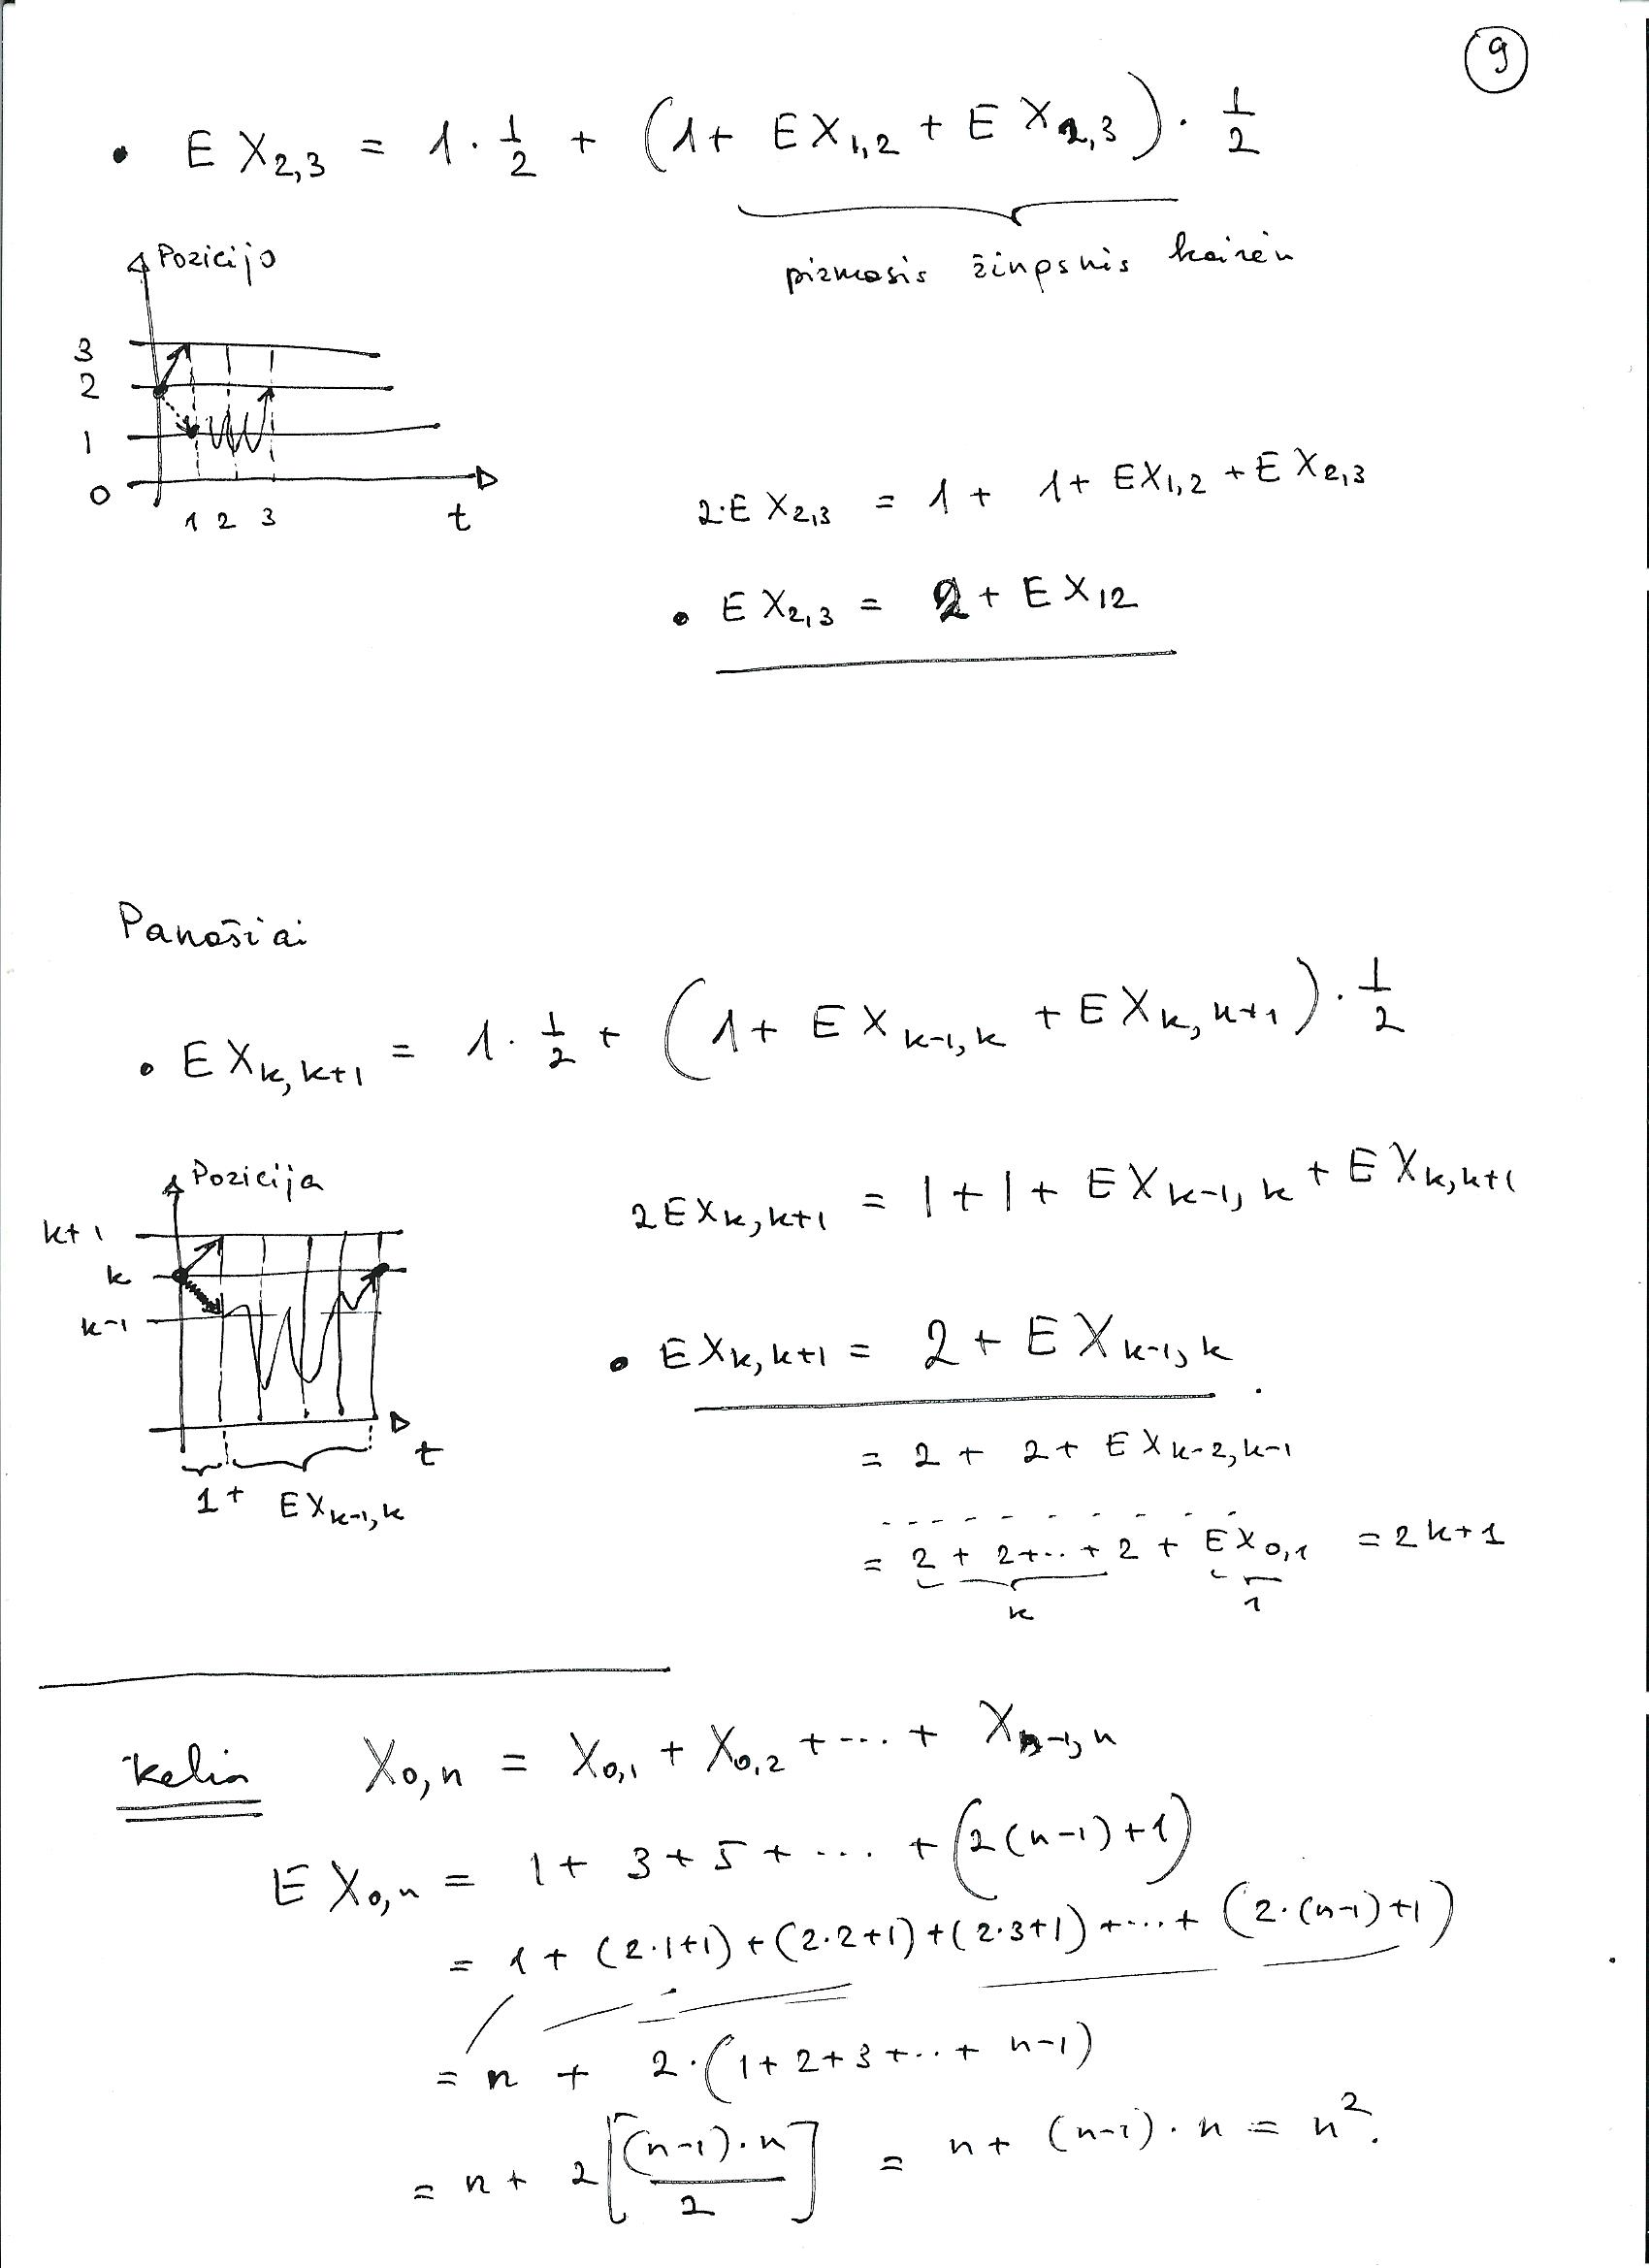 9
• E X_{2,3} = 1 · 1/2 + (1 + E X_{1,2} + E X_{2,3}) · 1/2
pirmasis žingsnis kairėn
Pozicijo
3
2
1
0
1 2 3
t
2·E X_{2,3} = 1 + 1 + E X_{1,2} + E X_{2,3}
• E X_{2,3} = 2 + E X_{12}
Panašiai
• E X_{k,k+1} = 1 · 1/2 + (1 + E X_{k-1,k} + E X_{k,k+1}) · 1/2
Pozicija
k+1
k
k-1
t
1 + E X_{k-1,k}
2 E X_{k,k+1} = 1 + 1 + E X_{k-1,k} + E X_{k,k+1}
• E X_{k,k+1} = 2 + E X_{k-1,k}.
= 2 + 2 + E X_{k-2,k-1}
- - - - - - - - - -
= 2 + 2 + .. + 2 + E X_{0,1} = 2k+1
k 1
X_{0,n} = X_{0,1} + X_{0,2} + ... + X_{n-1,n}
E X_{0,n} = 1 + 3 + 5 + ... + (2(n-1)+1)
= 1 + (2·1+1) + (2·2+1) + (2·3+1) + ... + (2·(n-1)+1)
= n + 2·(1+2+3+..+ n-1)
= n + 2[(n-1)·n / 2] = n + (n-1)·n = n².